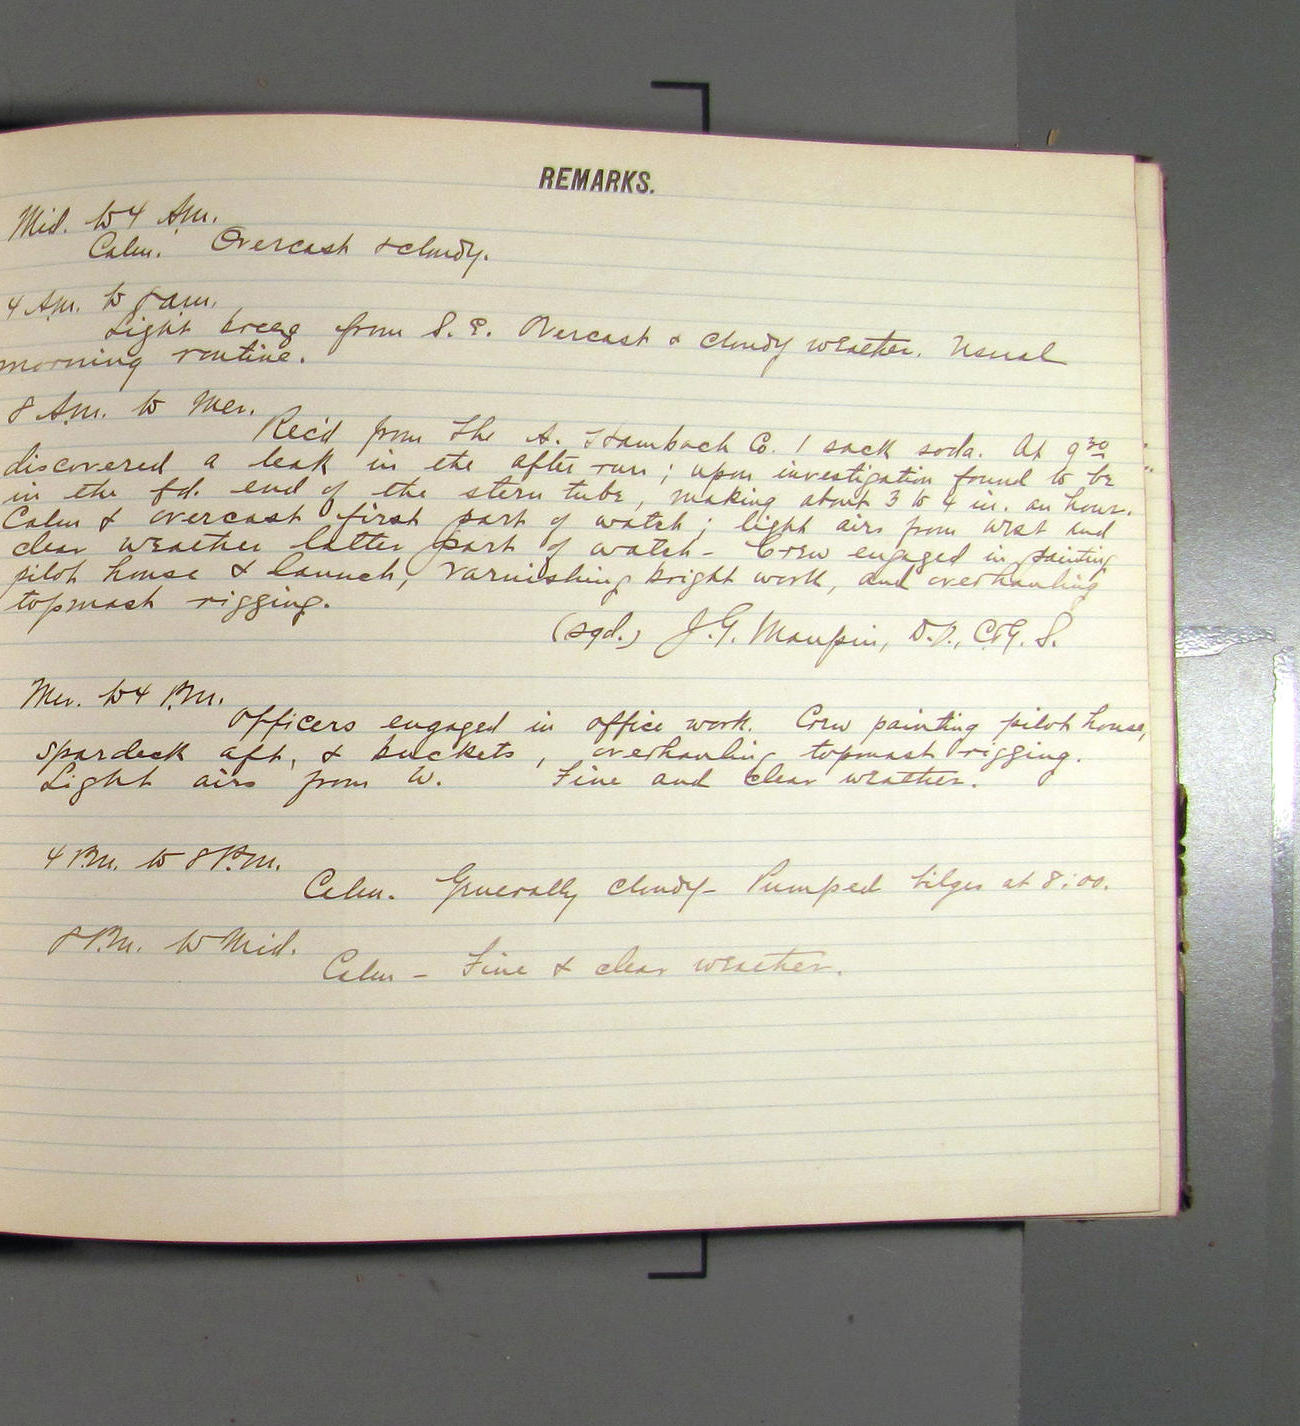 REMARKS.
Mid. to 4 Am.
Calm. Overcast & cloudy.
4 Am. to 8 am.
Light breeze from S. E. Overcast & cloudy weather. Usual
morning routine.
8 Am. to Mer.
Rec'd from the A. Stambach Co. 1 sack soda. At 9 30
discovered a leak in the after run; upon investigation found to be
in the fd. end of the stern tube, making about 3 to 4 in. an hour.
Calm & overcast first part of watch; light airs from west and
clear weather latter part of watch - Crew engaged in painting
pilot house & launch, varnishing bright work, and overhauling
topmast rigging.
(sgd.) J. G. Maupin, D.O., C.&G. S.
Mer. to 4 P.m.
Officers engaged in office work. Crew painting pilot house,
spardeck aft, & buckets, overhauling topmast rigging.
Light airs from W. Fine and clear weather.
4 Pm. to 8 P.m.
Calm. Generally cloudy - Pumped bilges at 8:00.
8 P.m. to Mid.
Calm - Fine & clear weather.